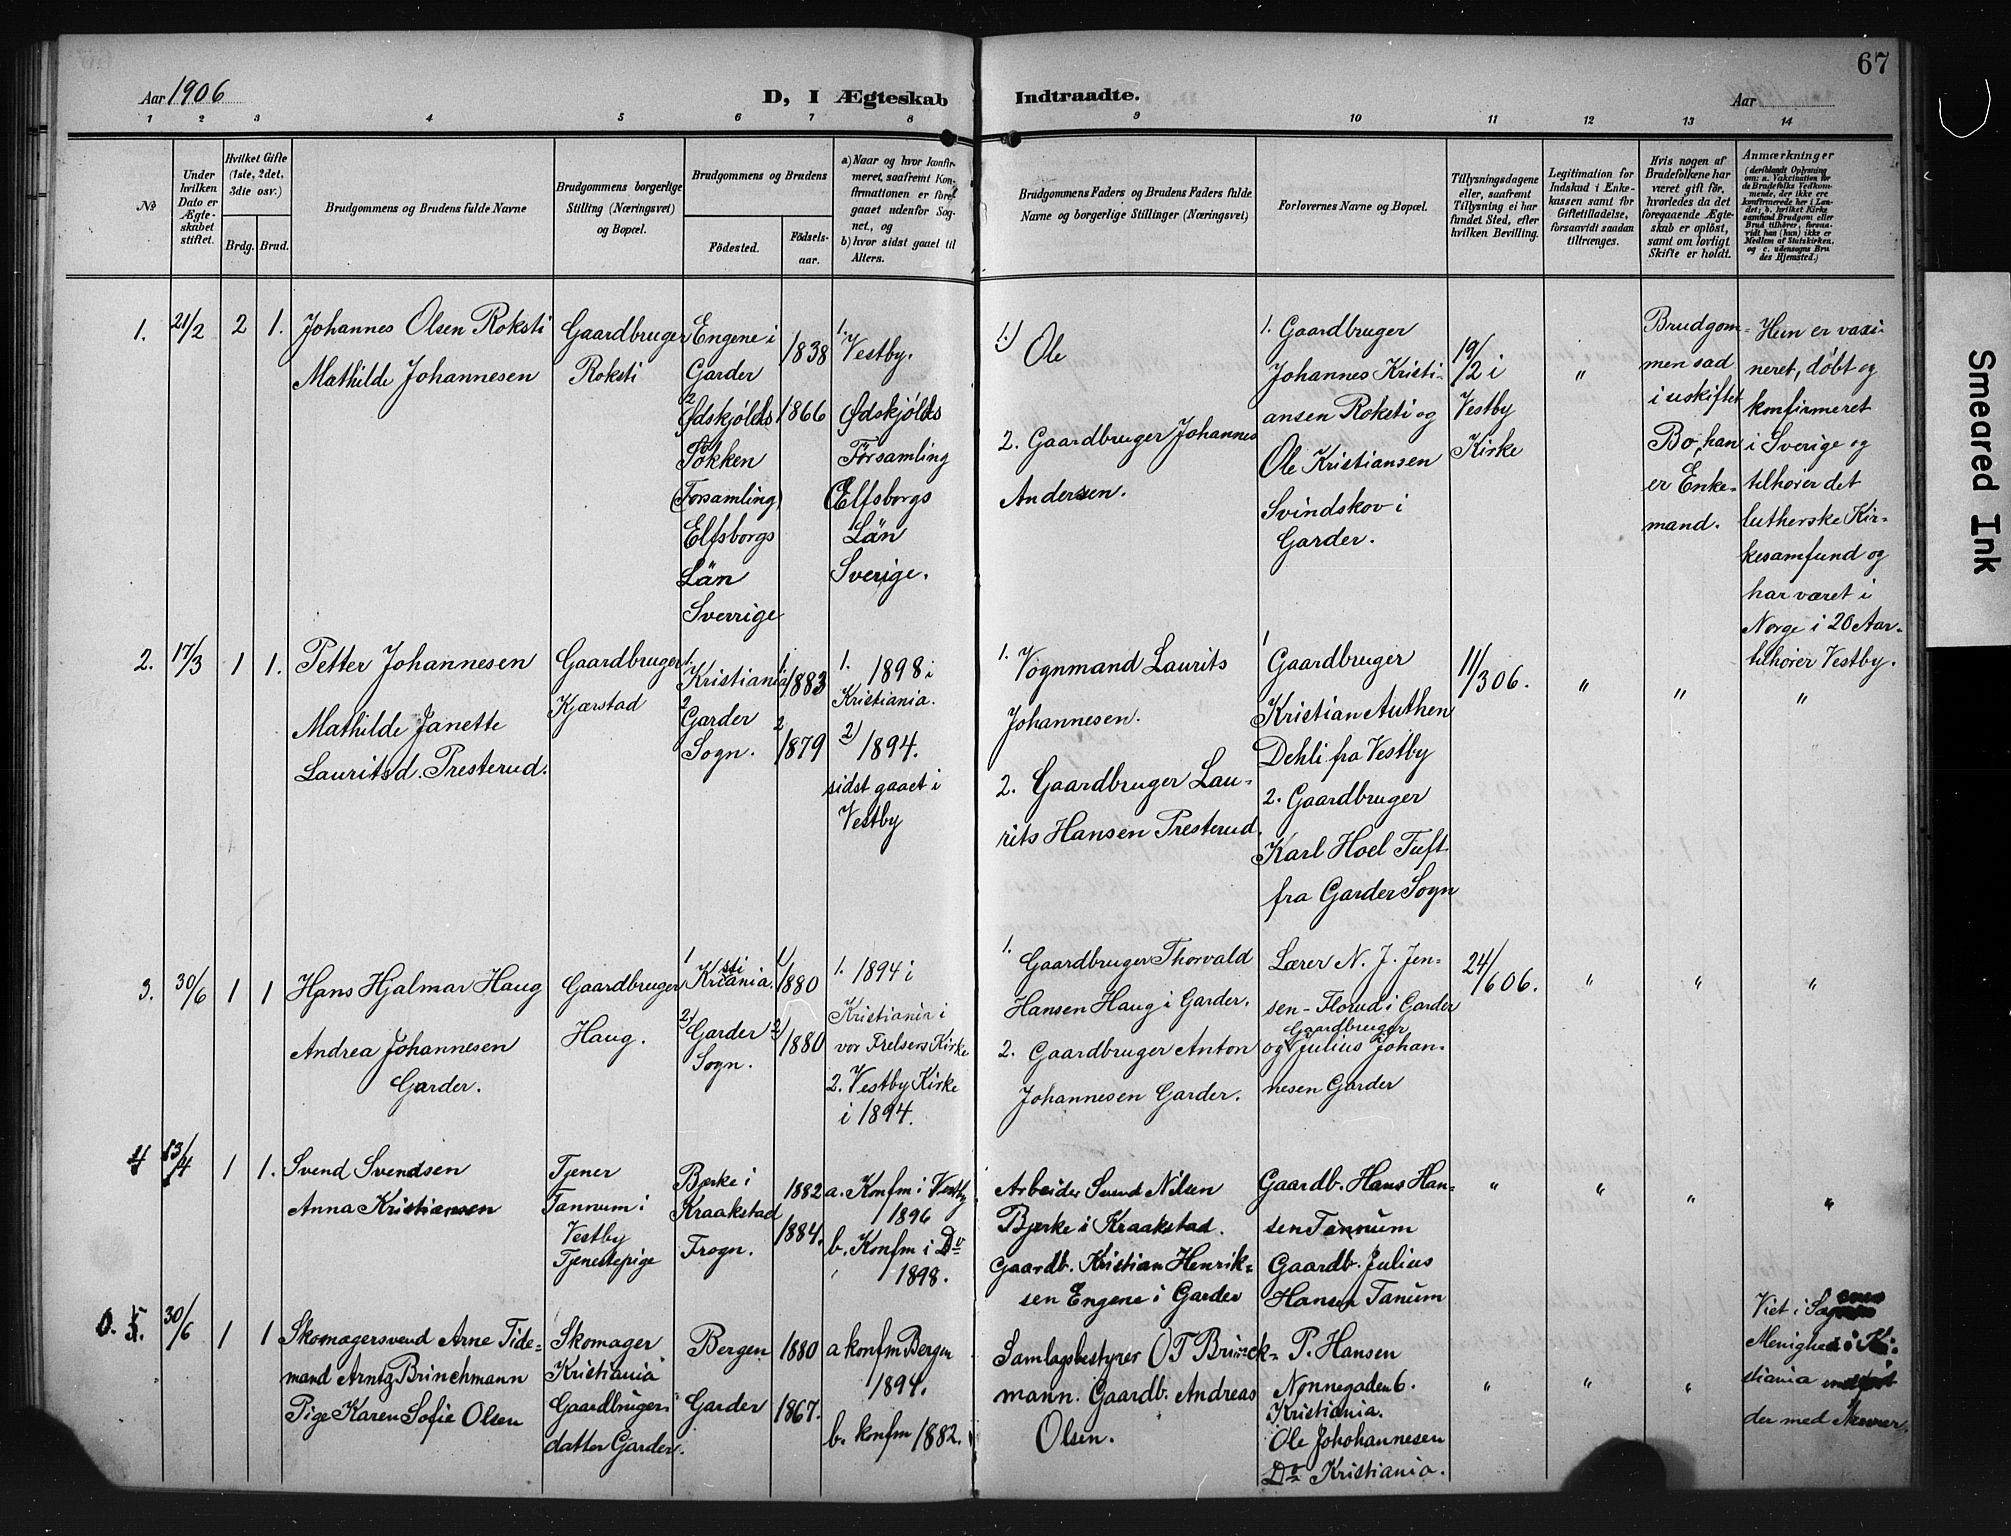 67
Aar 1906
D, I Ægteskab Indtraadte.
Aar
1 2 3 4 5 6 7 8 9 10 11 12 13 14
No
Under hvilken Dato er Ægteskabet stiftet.
Hvilket Gifte (1ste, 2det, 3die osv.)
Brdg. Brud.
Brudgommens og Brudens fulde Navne
Brudgommens borgerlige Stilling (Næringsvei) og Bopæl.
Brudgommens og Brudens
Födested. Födselsaar.
a) Naar og hvor konfirmeret, saafremt Konfirmationen er foregaaet udenfor Sognet, og
b) hvor sidst gaaet til Alters.
Brudgommens Faders og Brudens Faders fulde Navne og borgerlige Stillinger (Næringsvei)
Forlovernes Navne og Bopæl.
Tillysningsdagene eller, saafremt Tillysning ei har fundet Sted, efter hvilken Bevilling.
Legitimation for Indskud i Enkekassen samt for Giftetilladelse, forsaavidt saadan tiltrænges.
Hvis nogen af Brudefolkene har været gift för, hvorledes da det foregaaende Ægteskab er oplöst, samt om lovligt Skifte er holdt.
Anmærkninger
(deriblandt Oplysning om: a. Vakcination for de Brudefolks Vedkommende, der ikke ere konfirmerede her i Landet; b. hvilket Kirkesamfund Brudgom eller Brud tilhörer, forsaavidt han (hun) ikke er Medlem af Statskirken, og c. udensogns Brudes Hjemsted.)
1. 21/2 2 1.
Johannes Olsen Roksti
Mathilde Johannesen
Gaardbruger
Roksti
Engene i
Garder
2
Ødskjölds
Tökken
(Forsamling)
Elfsborgs
Län
Sverrige
1838
1866
1.
Vestby.
Ødskjölds
Församling
(Elfsborgs
Län
Sverige.
1.) Ole
2. Gaardbruger Johannes
Andersen.
1. Gaardbruger
Johannes Kristi-
ansen Roksti og
Ole Kristiansen
Svindskov i
Garder.
19/
/2 i
Vestby
Kirke
"
Brudgom-
men sad
i uskiftet
Bo, han
er Enke-
mand.
Hun er vaxi-
neret, døbt og
konfirmeret
i Sverige og
tilhører det
lutherske Kir-
kesamfund og
har været i
Norge i 20 Aar-
tilhører Vestby.
2. 17/3 1 1.
Petter Johannesen
Mathilde Janette
Lauritsd. Presterud.
Gaardbruger
Kjærstad
1. Kristiania
2 Garder
Sogn.
1. 1883
2 1879
1. 1898 i
Kristiania.
2) 1894.
sidst gaaet i
Vestby
1. Vognmand Laurits
Johannesen.
2. Gaardbruger Lau-
rits Hansen Presterud.
1
Gaardbruger
Kristian Authen
Dehli fra Vestby
2. Gaardbruger
Karl Hoel Tuft
fra Garder Sogn
11/
/306.
" " "
3. 30/6 1 1
Hans Hjalmar Haug
Andrea Johannesen
Garder.
Gaardbruger
Haug.
1 Kristiania.
2) Garder
Sogn.
1) 1880
2) 1880
1. 1894 i
Kristiania i
vor Frelsers Kirke
2. Vestby Kirke
i 1894.
1. Gaardbruger Thorvald
Hansen Haug i Garder.
2. Gaardbruger Anton
Johannesen Garder.
Lærer N. J. Jen-
sen - Florud i Garder
Gaardbruger
og Julius Johan-
nesen Garder
24/
/606.
" " "
4 13/4 1 1.
Svend Svendsen
Anna Kristiansen
Tjener
Tannum i
Vestby
Tjenestepige
Bjerke i
Kraakstad
Frogn.
1882
1884.
a. Konfm i Vestby
1896
b. Konfm i Do
1898.
Arbeider Svend Nilsen
Bjerke i Kraakstad.
Gaardb. Kristian Henrik-
sen Engene i Garder
Gaardb. Hans Han-
sen Tannum
Gaardb. Julius
Hansen Tanum
" " " "
O. 5. 30/6 1 1
Skomagersvend Arne Tide-
mand Arntz Brinchmann
Pige Karen Sofie Olsen
Skomager
Kristiania
Gaardbruger-
datter Garder.
Bergen
Garder
1880
1867.
a konfm Bergen
1894.
b. konfm 1882.
Samlagsbestyrer O T Brinck-
mann. Gaardb. Andreas
Olsen.
P. Hansen
Nonnegaden 6.
Kristiania.
Ole Johohannesen
Do Kristiania.
" " "
Viet i
Menighed i Kri-
stiania
der med
Smeared Ink